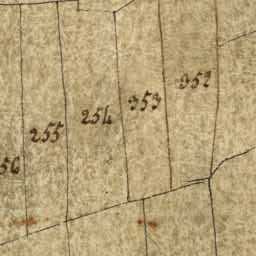 952
353
254
255
56